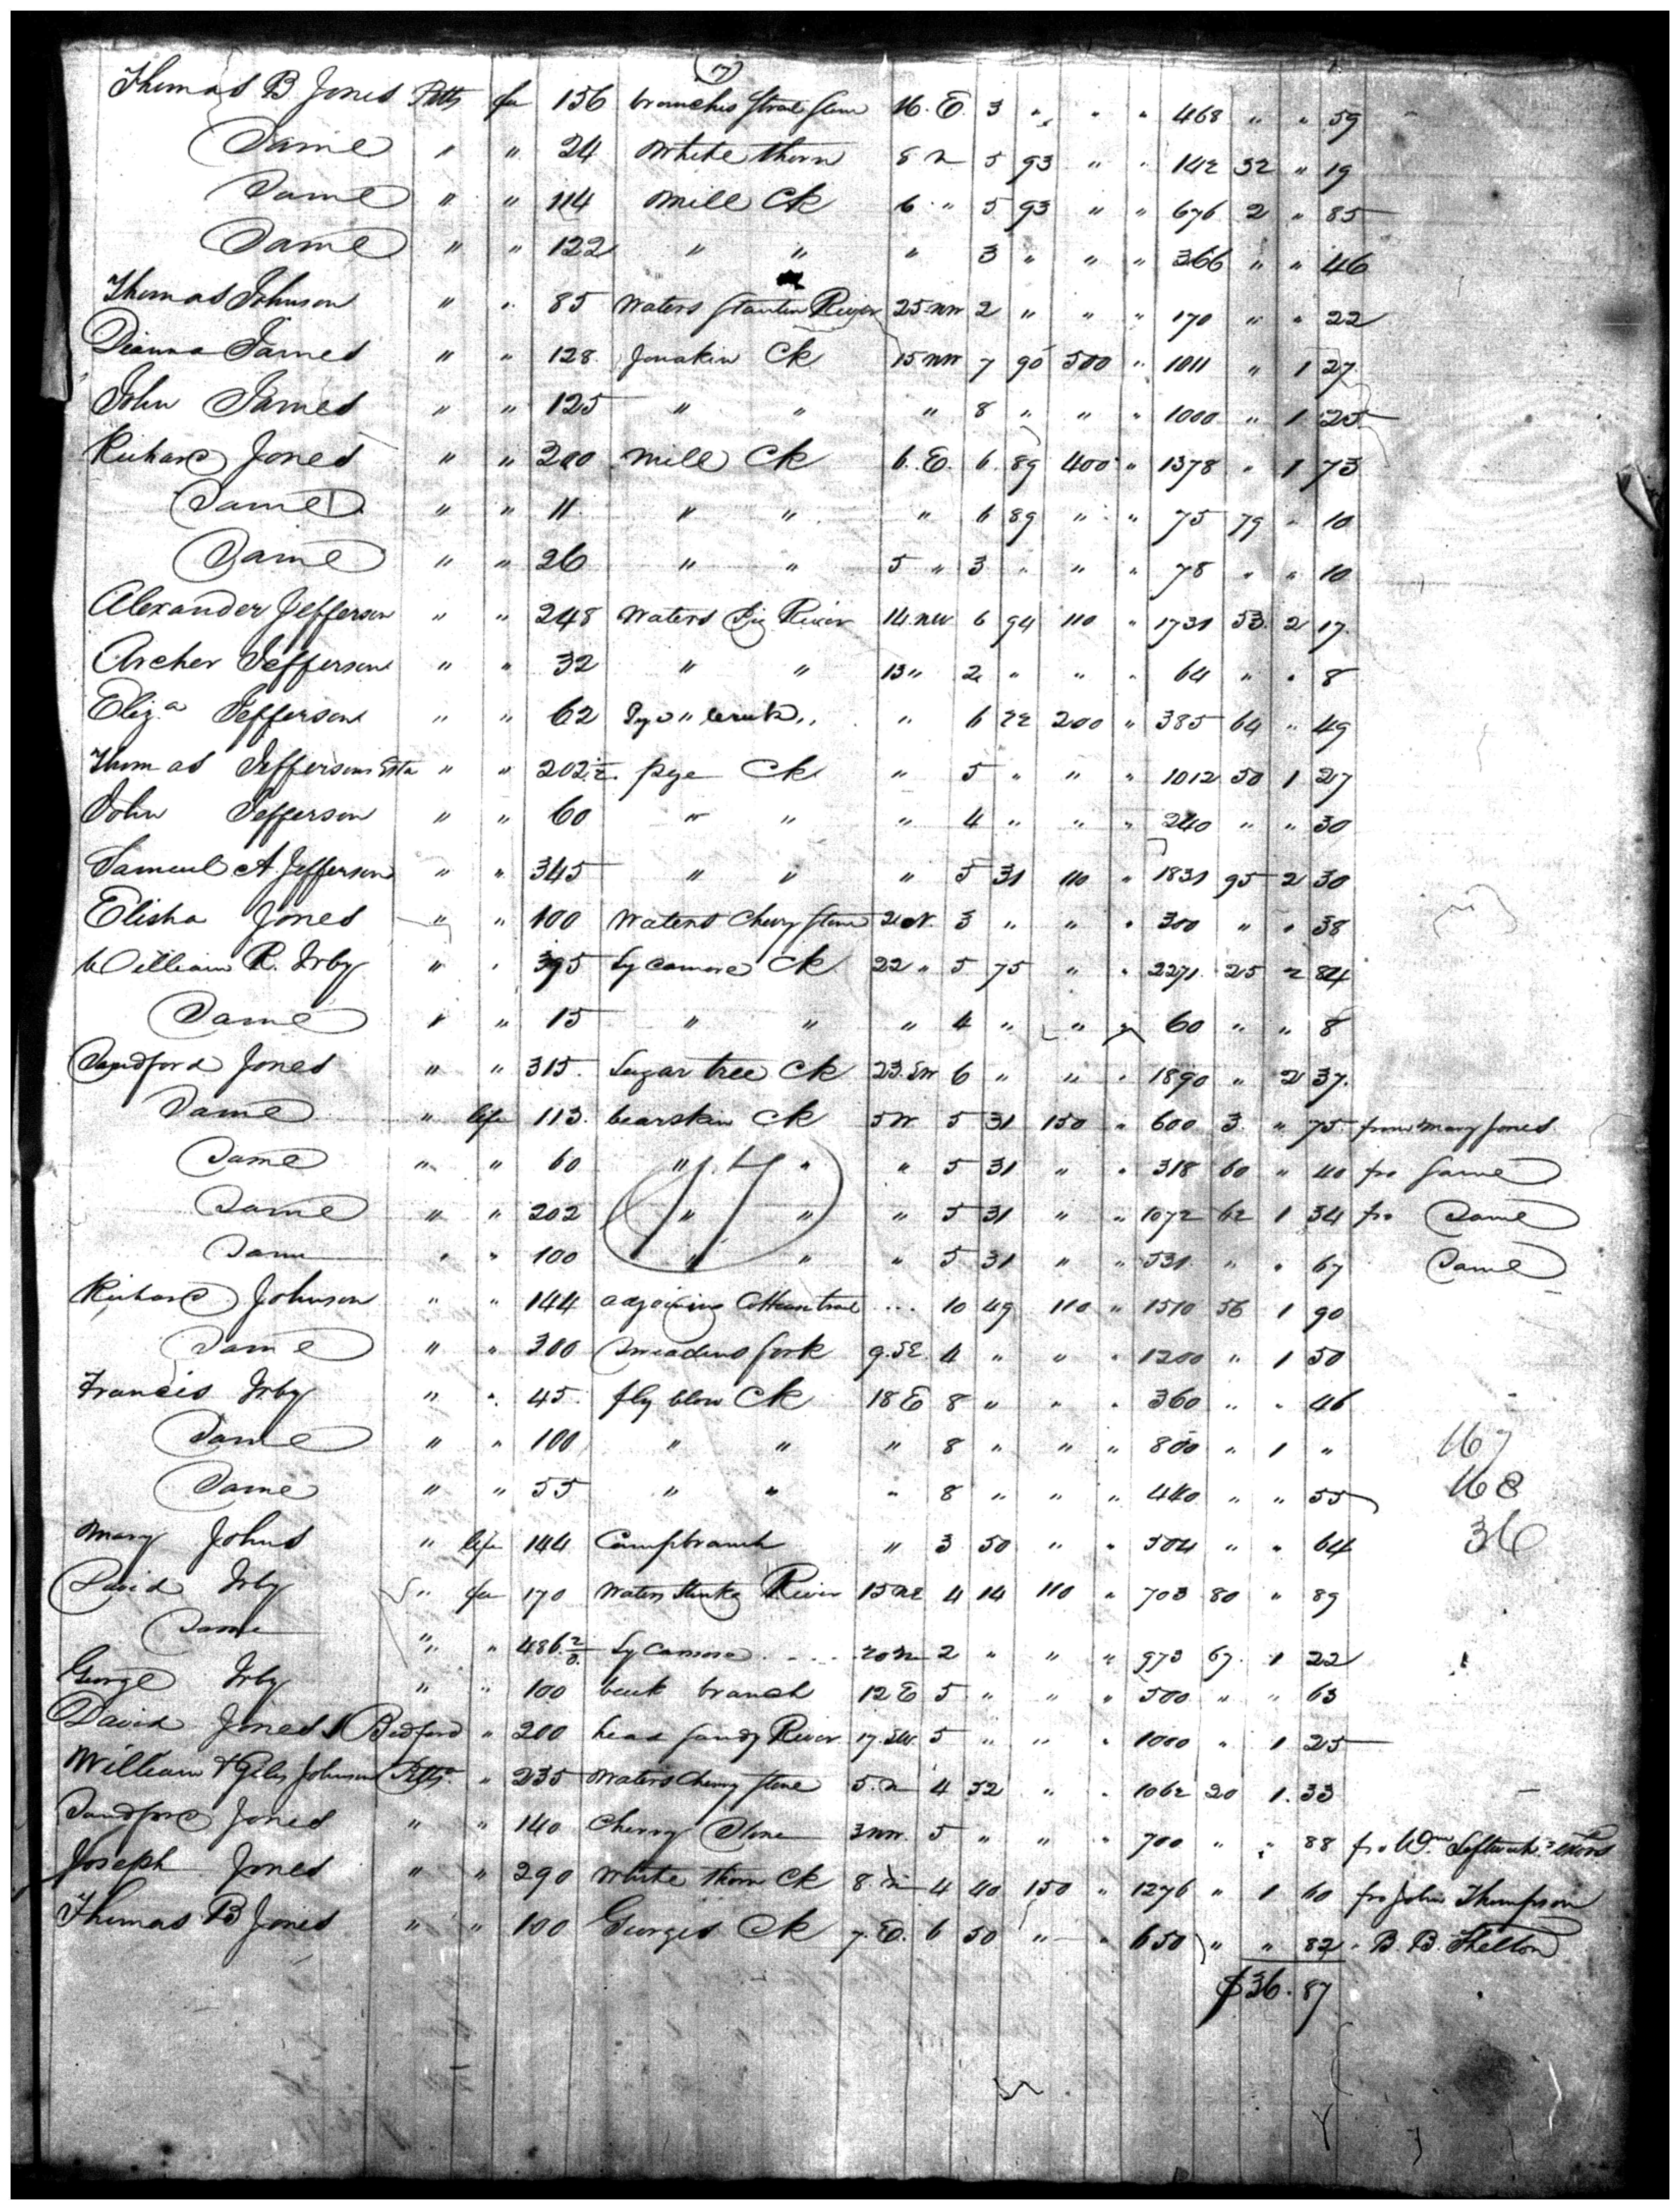 (7)
Thomas B Jones Pitts fee 156 branches Stone 16. E. 3 " " " 468 " " 59
Same " " 24 White thorn 8 N 5 93 " " 142 32 " 19
Same " " 114 Mill Ck 6 " 5 93 " " 676 2 " 85
Same " " 122 " " " 3 " " " 366 " " 46
Thomas Johnson " " 85 Waters Stanton River 25 NW 2 " " " 170 " " 22
Dianna James " " 128 Jonakin Ck 15 NW 7 90 500 " 1011 " 1 27
John James " " 125 " " " 8 " " " 1000 " 1 25
Richard Jones " " 200 Mill Ck 6. E. 6 89 400 " 1378 " 1 73
Same " " 11 " " " 6 89 " " 75 79 " 10
Same " " 26 " " 5 " 3 " " " 78 " " 10
Alexander Jefferson " " 248 Waters Pig River 14 NW 6 94 110 " 1731 53 2 17
Archer Jefferson " " 32 " " 13 " 2 " " " 64 " " 8
Eliza Jefferson " " 62 " " 6 22 200 " 385 64 " 49
Thomas Jeffersons Esta " " 202 1/2 pye Ck " 5 " " " 1012 50 1 27
John Jefferson " " 60 " " " 4 " " " 240 " " 30
Samuel A. Jefferson " " 345 " " " 5 31 110 " 1831 95 2 30
Elisha Jones " " 100 Waters Cherry Stone 2 N. 3 " " " 300 " " 38
William R. Irby " " 395 Sycamore Ck 22 " 5 75 " " 2271 25 2 84
Same " " 15 " " " 4 " " " 60 " " 8
Sandford Jones " " 315 Sugar tree Ck 23. SW 6 " " " 1890 " 2 37
Same " life 113 bearskin Ck 5 W 5 31 150 " 600 3 " 75 from Mary Jones
Same " " 60 " " " 5 31 " " 318 60 " 40 fro Same
Same " " 202 " " " 5 31 " " 1072 62 1 34 fro Same
Same " " 100 " " " 5 31 " " 531 " " 67 Same
17
Richard Johnson " " 144 adjoining 10 49 110 " 1510 56 1 90
Same " " 300 fork 9. SE. 4 " " " 1200 " 1 50
Francis Irby " " 45 fly blow Ck 18 E 8 " " " 360 " " 46
Same " " 100 " " " 8 " " " 800 " 1 " 167
Same " " 55 " " " 8 " " " 440 " " 55 168
Mary Johns " life 144 Campbranch " 3 50 " " 504 " " 64 36
David Irby " fee 170 Waters River 15 NE 4 14 110 " 703 80 " 89
Same " " 486 2/3 Sycamore 20 N 2 " " " 973 67 1 22
George Irby " " 100 branch 12 E 5 " " " 500 " " 63
David Jones Bedford " 200 head Sandy River 17. SW. 5 " " " 1000 " 1 25
William & Giles Johnson Pitts " 235 Waters Cherry Stone 5. N 4 52 " " 1062 20 1 33
Sandford Jones " " 140 Cherry Stone 3 NW. 5 " " " 700 " " 88 fro Wm.
Joseph Jones " " 290 White thorn Ck 8. N 4 40 150 " 1276 " 1 60 fro John Thompson
Thomas B Jones " " 100 Georges Ck 7. E. 6 50 " " 650 " " 82 " B. B. Shelton
$36.87